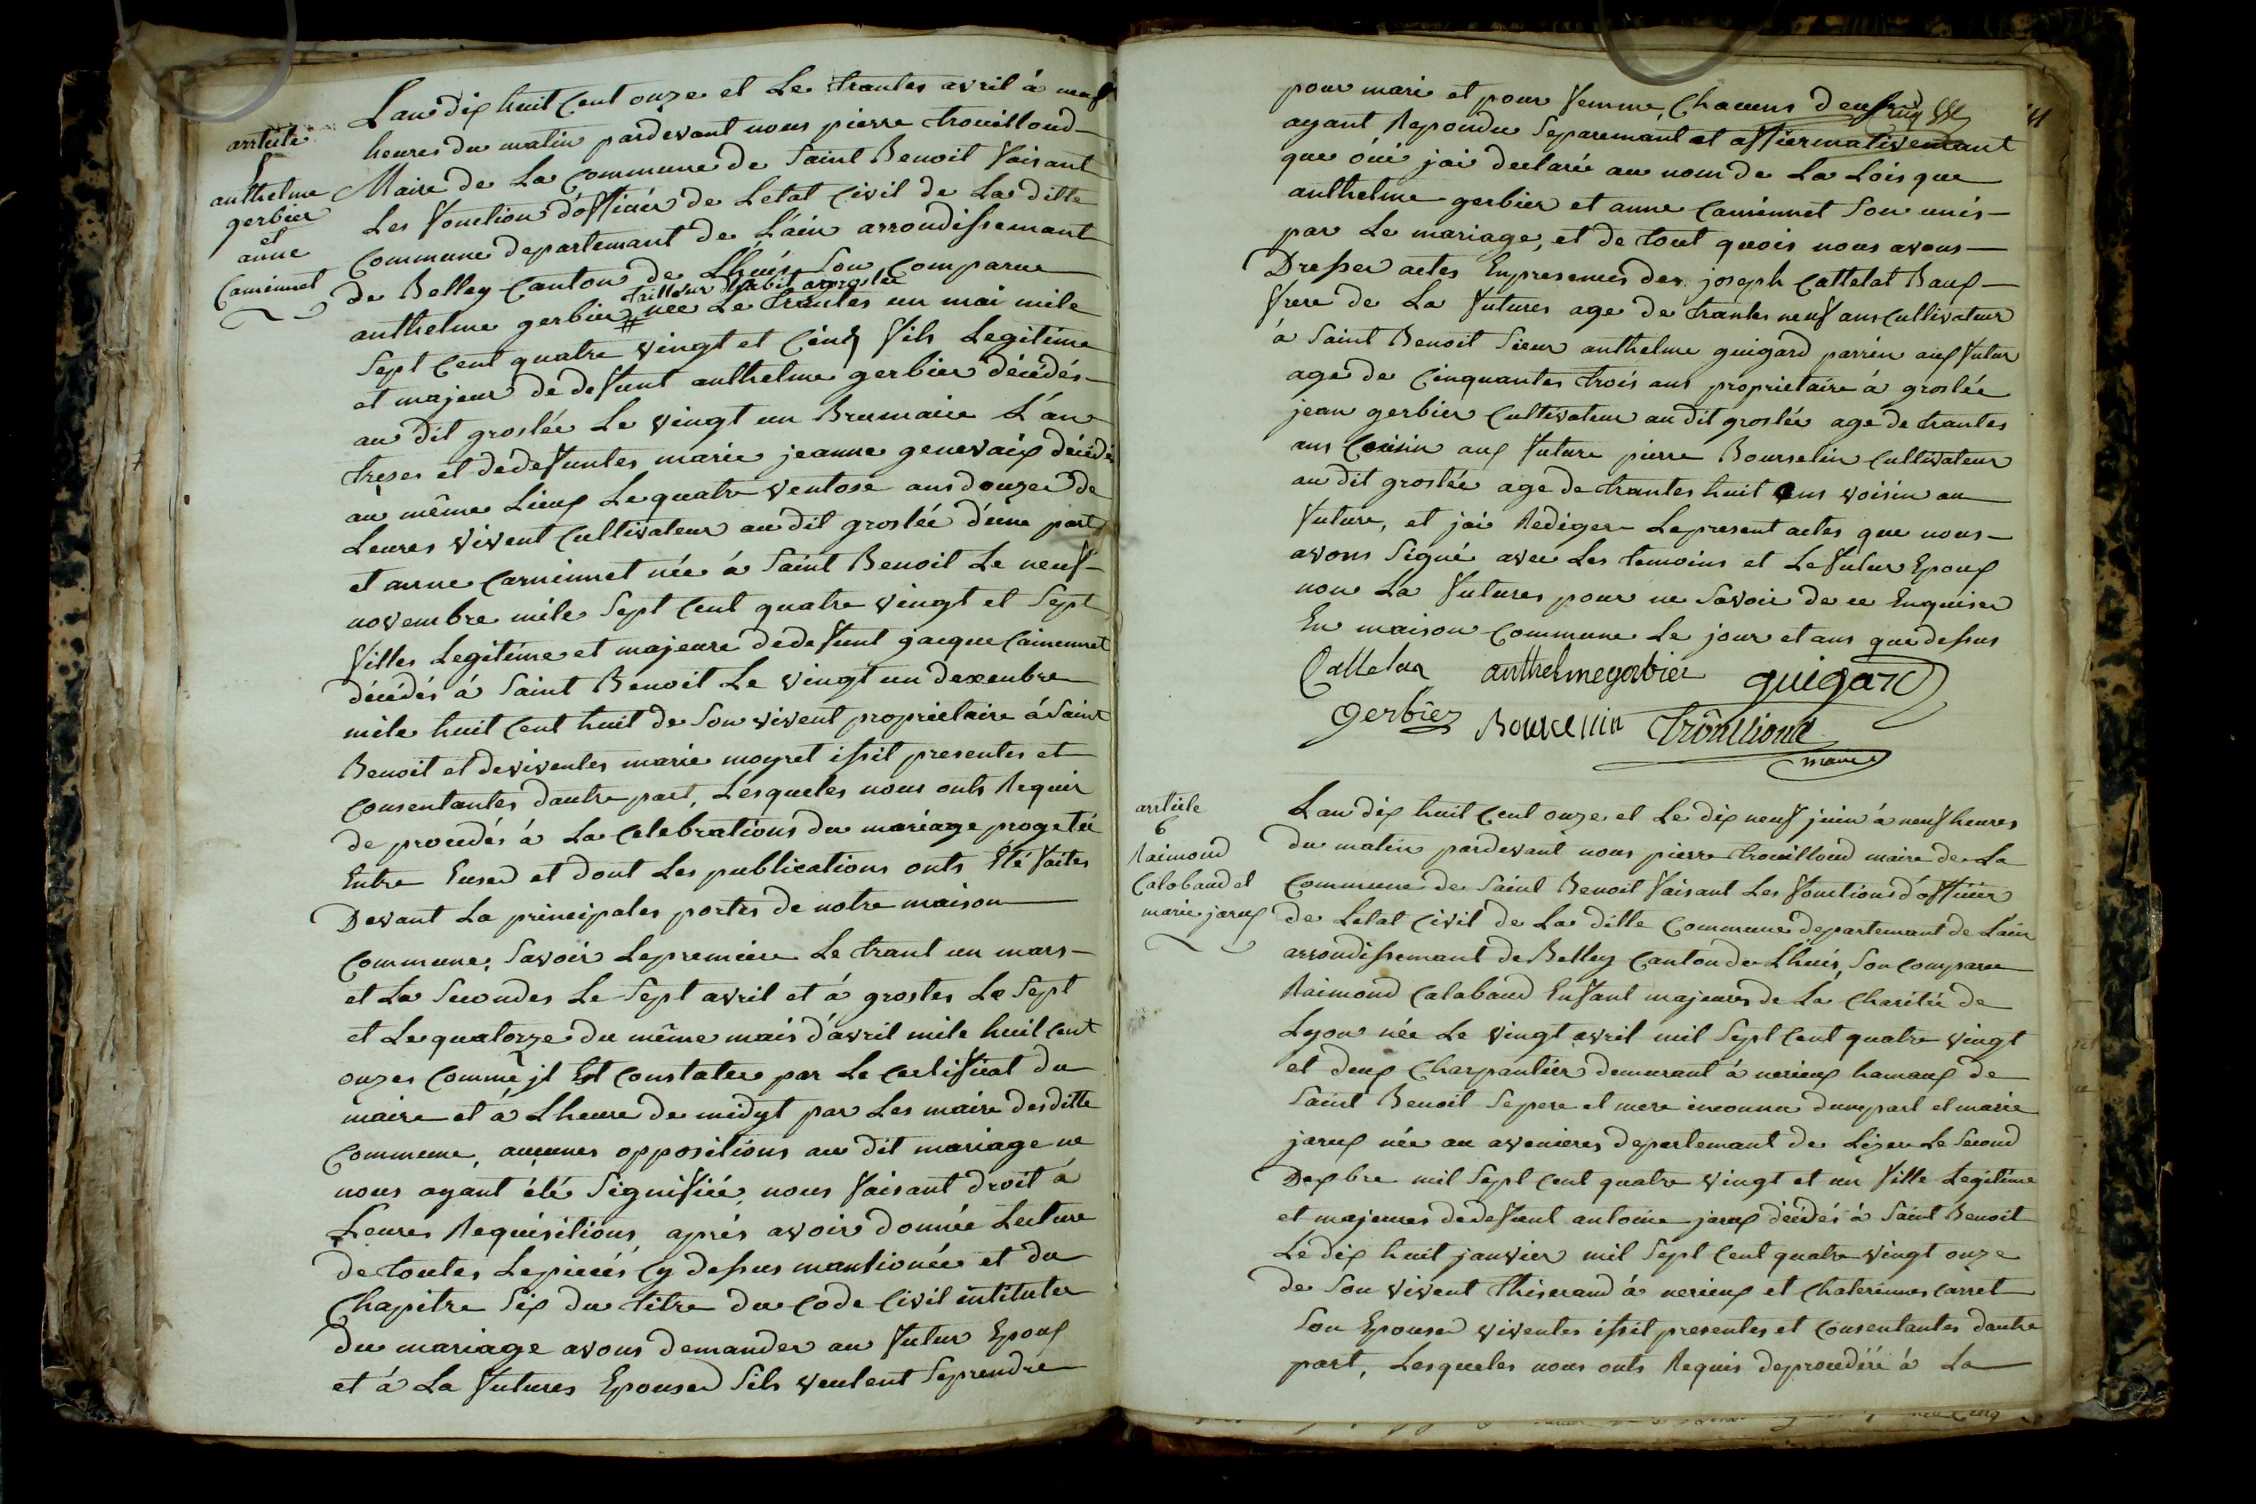 article
5
anthelme
gerbier
et
anne
Caminnet
Lan dix huit Cent onze et Le trantes avril á neuf
heures du matin pardevant nous pierre trouilloud
Maire de La Commune de Saint Benoit faisant
Les fonction d'officiér de Letat Civil de La ditte
Commune departemant de L'ain arrondissemant
de Belley Canton de Lhuis Son Comparue
tailleur d'habit agroslée
anthelme gerbier # née Le trantes un mai mile
Sept Cent quatre vingt et Cinq fils Legitime
et majeur de defunt anthelme gerbier décédés
au dit groslée Le vingt un Brumaire L'an
treses et dedefuntes marie jeanne genevaix décédés
au même Lieux Le quatre ventose ans douzes de
Leures vivent Cultivateur au dit groslée d'eune part
et anne Caminnet née á Saint Benoit Le neuf
novembre mile Sept Cent quatre vingt et Sept
filles Legitime et majeure dedefunt jacque Caminnet
décédés á Saint Benoit Le vingt un dexenbre
mile huit Cent huit de Son vivent proprietaire á Saint
Benoit et deviventes marie moyret issit presentes et
Consentantes dautre part, Lesqueles nous onts Requir
de procedés á La Celebrations du mariage progetée
Entre Eused et dont Les publications onts Eté faites
Devant La principales portes de notre maison
Commune, Savoir Lepremiere Le trant un mars
et La Secondes Le Sept avril et á grosles Le Sept
et Le quatorze du même mais d'avril mile huit Cent
onzes Comme jl Est Constatee par Le Certificat du
maire et á Lheure de midyt par Les maire desditte
Commune, aucunes oppositions au dit mariage ne
nous ayant été Signifiée, nous faisant droit á
Leures Requisitions aprés avoir donnée Lecture
de toutes Lepiecés Cy dessus mantionée et du
Chapitre Six du titre du Code Civil intituter
Du mariage avons demander au futur Epoux
et á La futures Epoused Sils veulent Seprendre
pour mari et pour femme, Chacuns deux
ayant Repondu Separemant et affiermativemant
que óui jai declaré au nom de La Lois que
anthelme gerbier et anne Caminnet Son unis
par Le mariage, et de tout quois nous avons
Dresser actes Enpresences des joseph Cattelat Baux
frere de La futures age de trantes neuf ans Cultivateur
á Saint Benoit Sieur anthelme guigard parrin aux futur
age de Cinquantes trois ans proprietaire á groslée
jean gerbier Cultivateur au dit groslée age de trantes
ans Cousin aux future pierre Bourselin Cultivateur
au dit groslée age de trantes huit ans voisin au
future, et jai Rediger Lepresent actes que nous
avons Signé avec Les temoins et Lefutur Epoux
non La futures pour ne Savoir de ce Enquiser
En maison Commune Le jour et ans que dessus
Cattelat anthelmegerbier guigard
gerbier Bourcelin trouilloud
maire
article
6
Raimond
Calobaud et
marie jarux
Lan dix huit Cent onze et Le dix neuf juin á neuf heures
du matin pardevant nous pierre trouilloud maire de La
Commune de Saint Benoit faisant Les fonctions d'officiér
de Letat Civil de La ditte Commune departemant de Lain
arrondissemant de Belley Canton de Lhuis, Son Comparue
Raimond Calabaud Enfant majeures de La Charitée de
Lyon née Le vingt avril mil Sept Cent quatre vingt
et deux Charpantier demurant á nerieux hamaux de
Saint Benoit Sepere et mere inconnu dunepart et marie
jarux née au avenieres departemant de Lizere Le Second
Dexbre mil Sept Cent quatre vingt et un fille Legitime
et majeures dedefunt antoine jarux décédés á Saint Benoit
Le dix huit janvier mil Sept Cent quatre vingt onze
de Son vivent thiserand á nerieux et Chaterinnes Carret
Son Epoused viventes issit presentes et Consentantes dautre
part, Lesqueles nous onts Requis deprocedéré á La